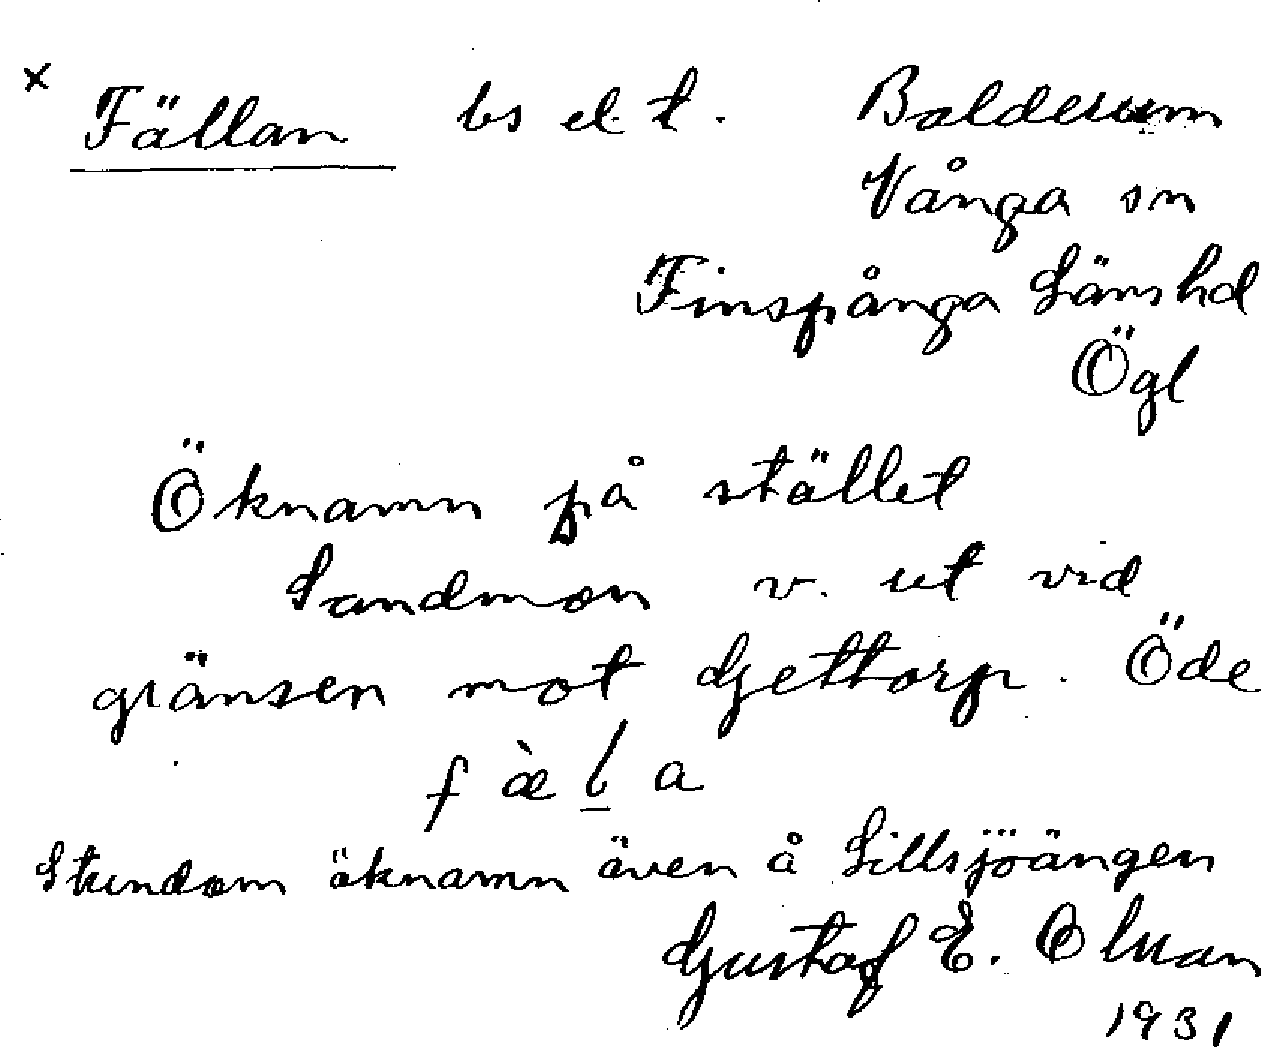 x Fällan bs el. t. Bolderum
Vånga sn
Finspånga Länshd
Ögl
Öknamn på stället
Sandmon v. ut vid
gränsen mot Gettorp. Öde
f æ̀ l̲ a
Stundom öknamn även å Lillsjöängen
Gustaf E. Olsson
1931